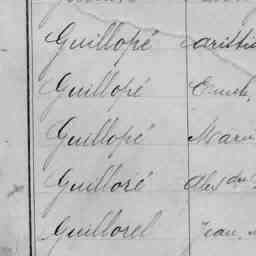 Guillopé Aristid
Guillopé
Guillopé Marie
Guilloré Alexdre
Guillorel Jean